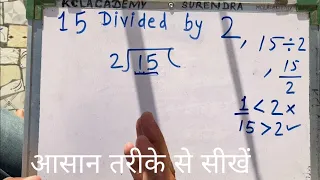 KCLACADEMY SURENDRA
15 Divided by 2, 15÷2
, 15/2
2)15(
1<2×
15>2✓
आसान तरीके से सीखें